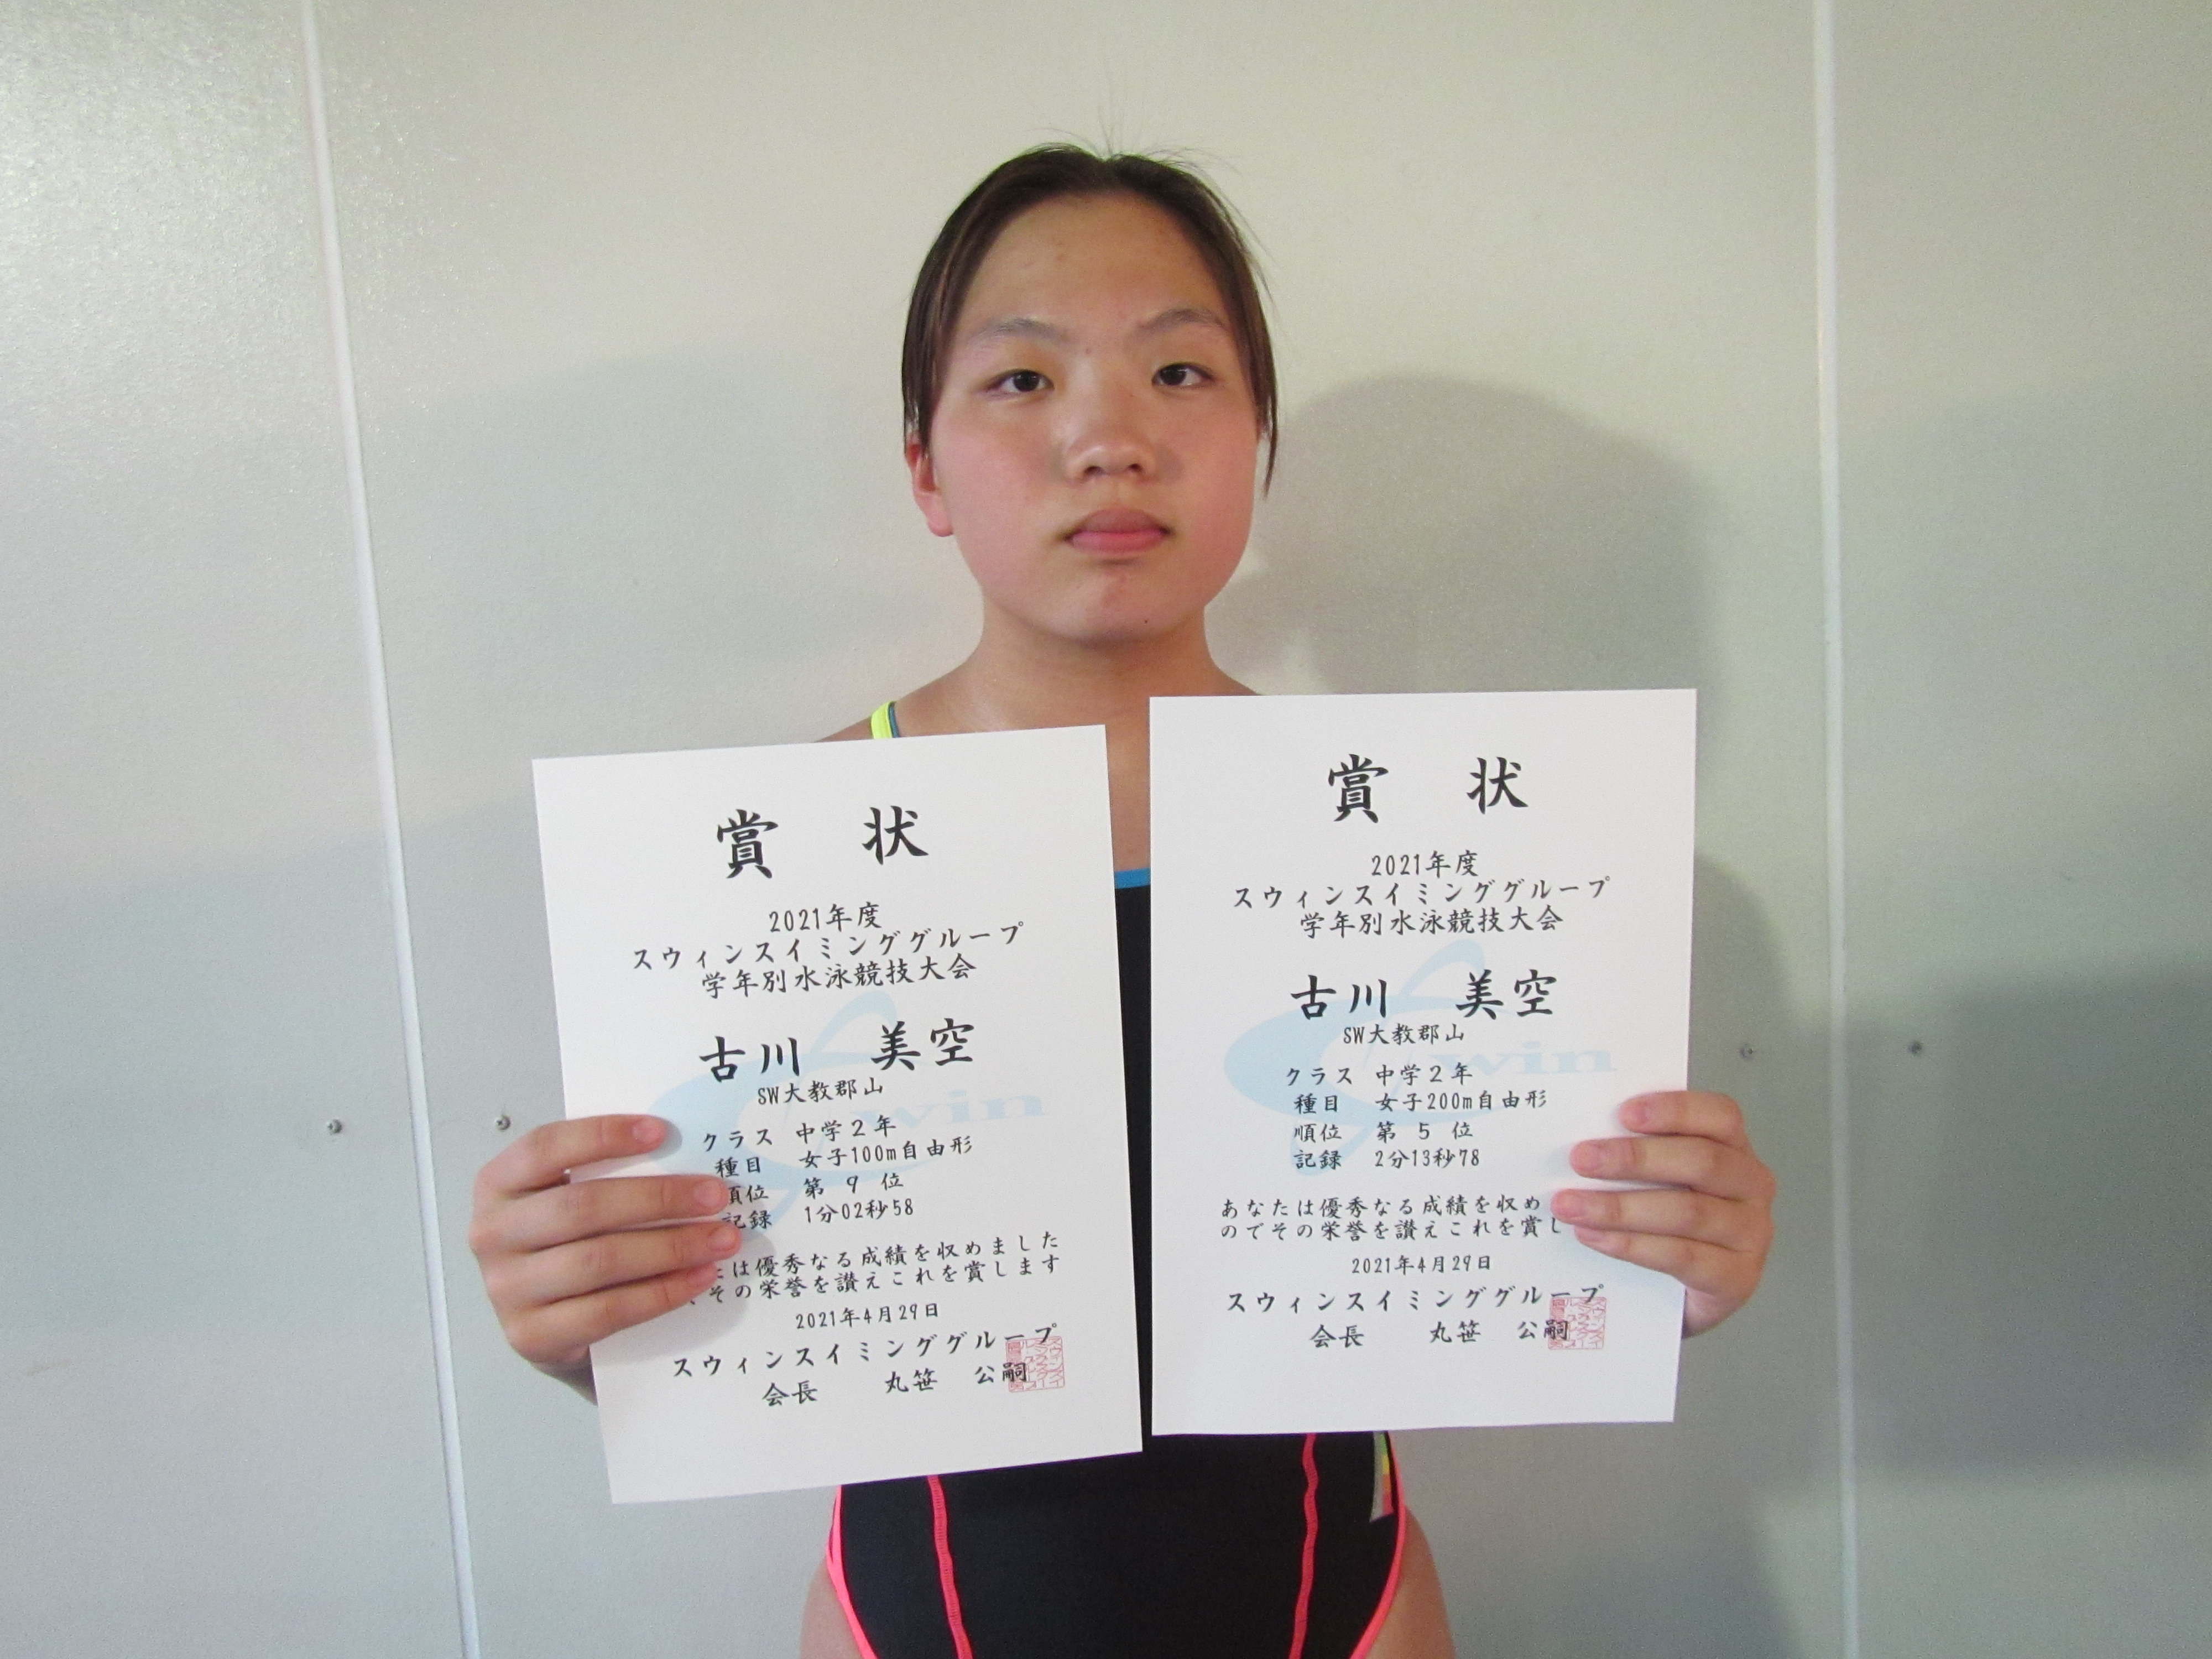 賞 状
2021年度
スウィンスイミンググループ
学年別水泳競技大会
古川 美空
SW大教郡山
クラス 中学2年
種目 女子100m自由形
順位 第 9 位
記録 1分02秒58
は優秀なる成績を収めました
その栄誉を讃えこれを賞します
2021年4月29日
スウィンスイミンググループ
会長 丸笹 公嗣
賞 状
2021年度
スウィンスイミンググループ
学年別水泳競技大会
古川 美空
SW大教郡山
Swin
クラス 中学2年
種目 女子200m自由形
順位 第 5 位
記録 2分13秒78
あなたは優秀なる成績を収め
のでその栄誉を讃えこれを賞し
2021年4月29日
スウィンスイミンググループ
会長 丸笹 公嗣